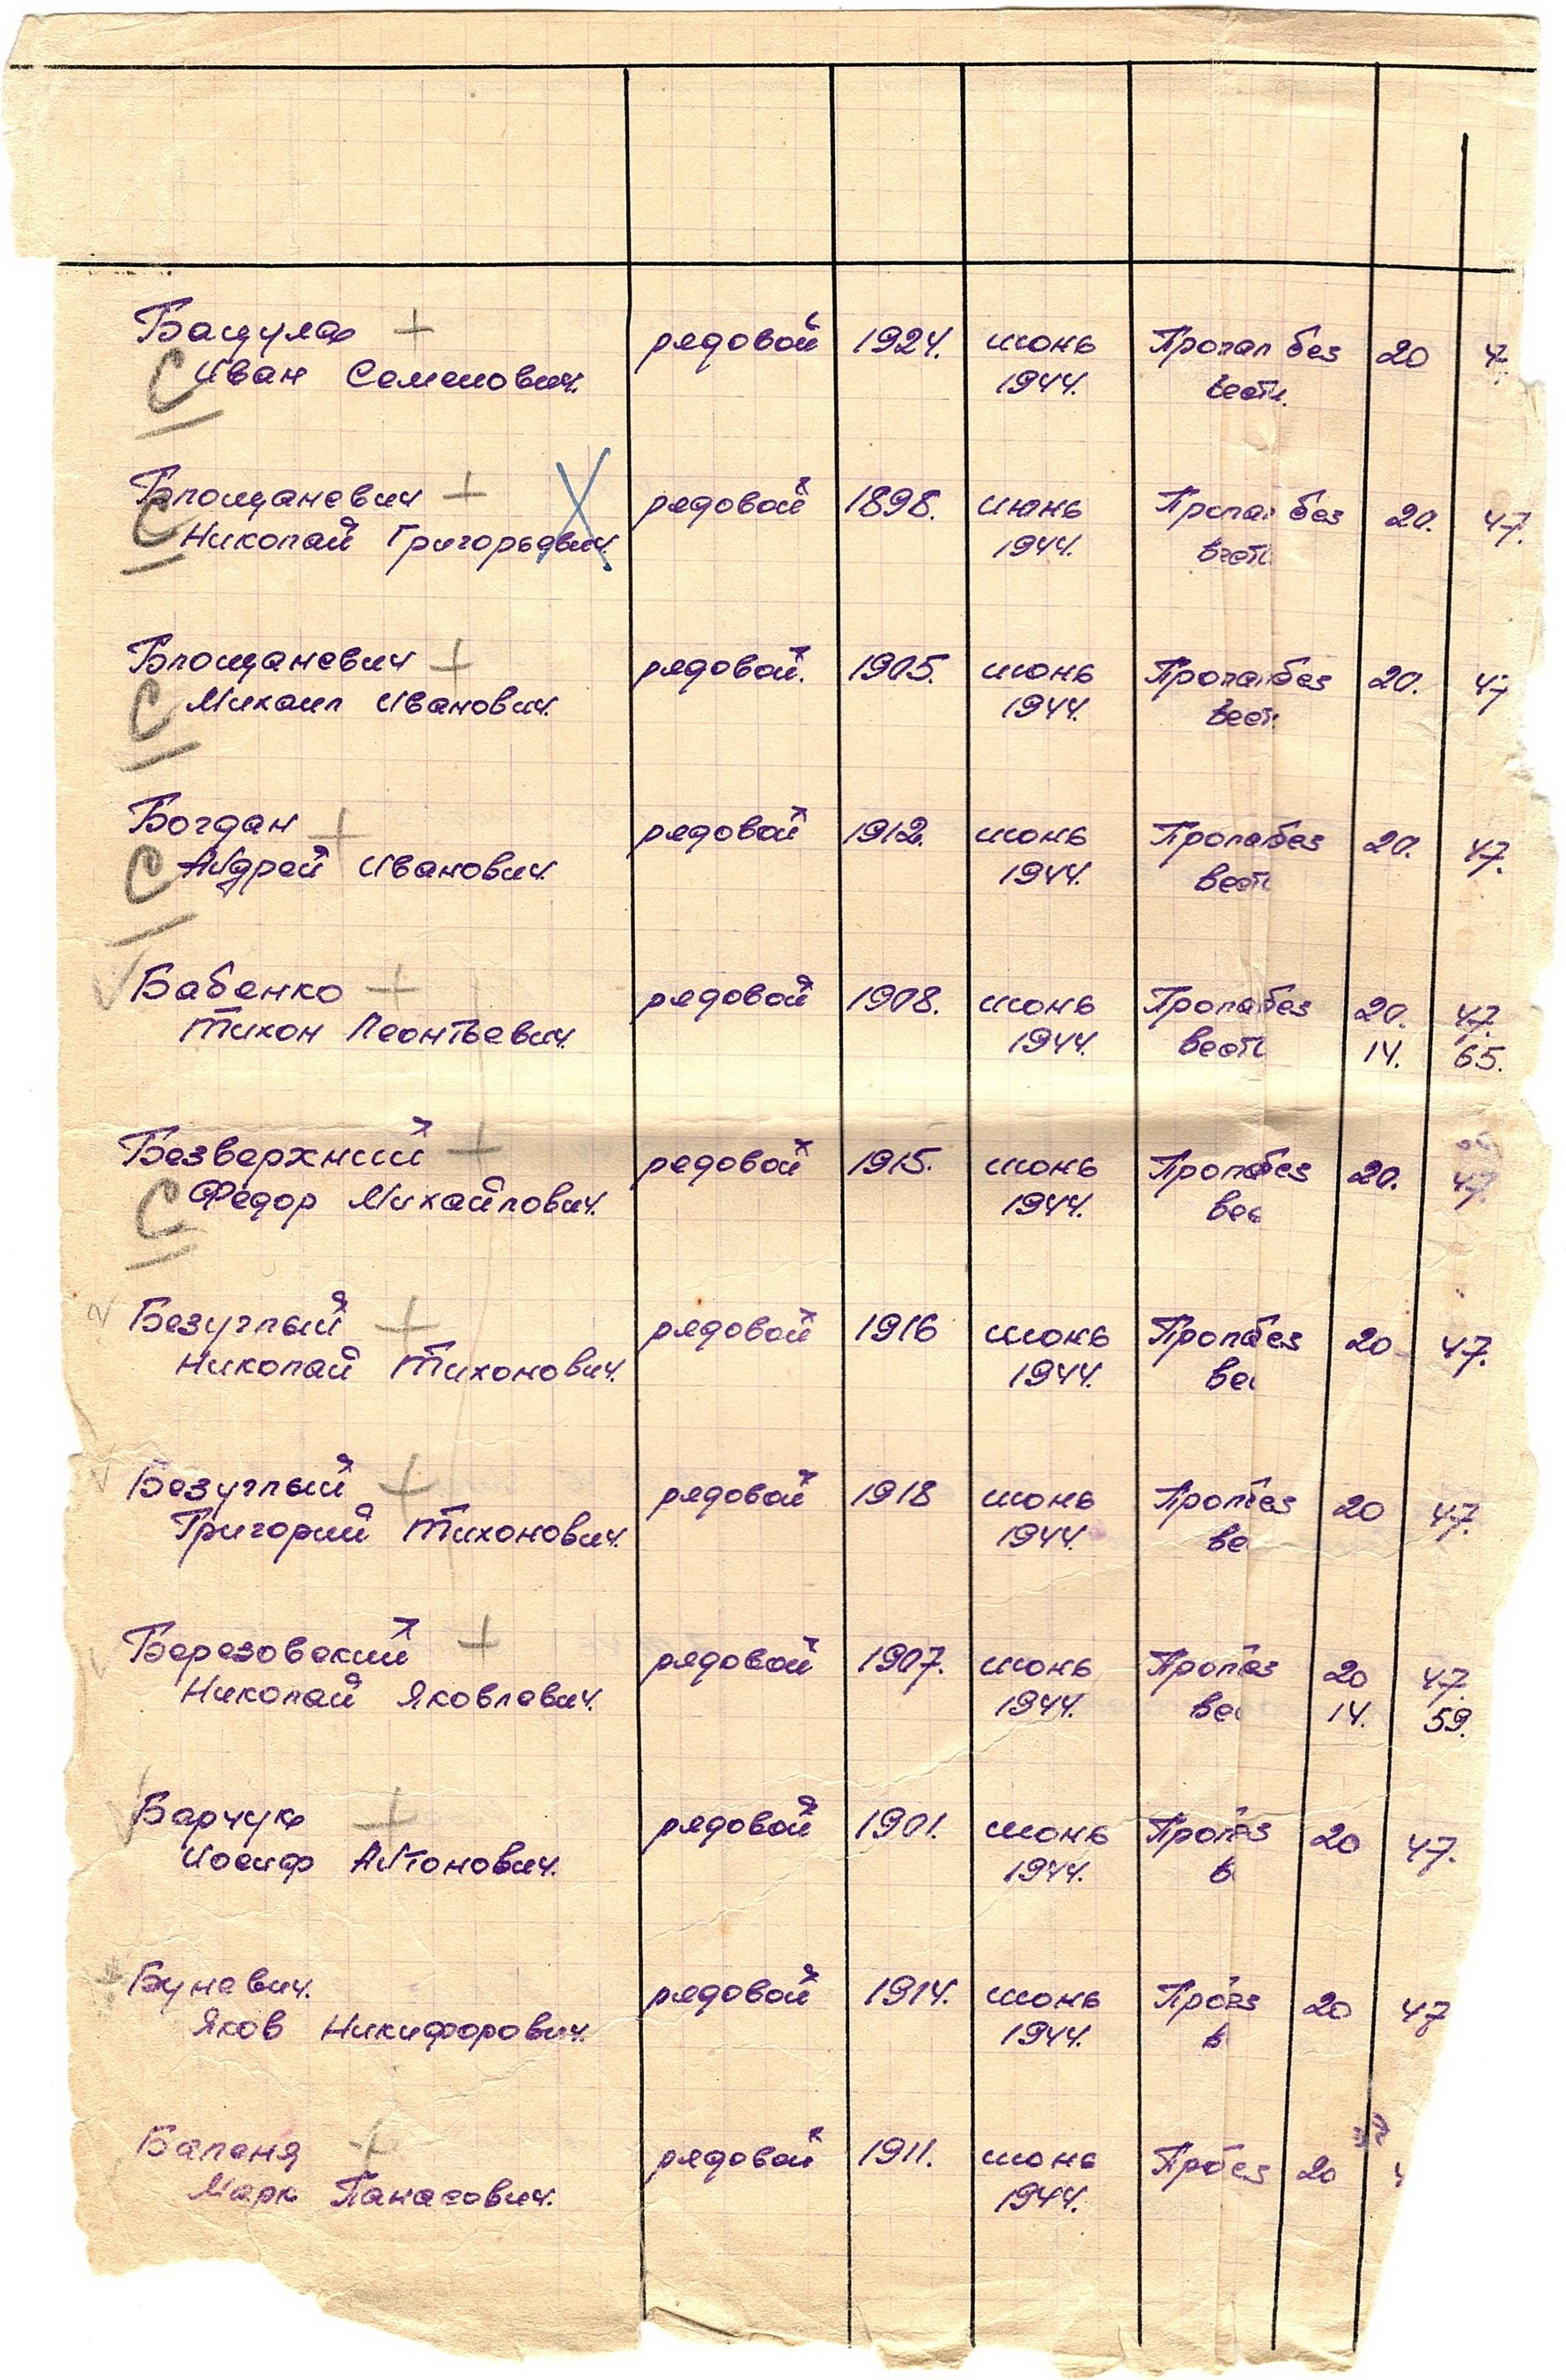 Бацула + рядовой 1924. июнь Пропал без 20 47
С Иван Семенович. 1944. вести.
Блощаневич + рядовой 1898. июнь Пропа без 20. 47.
С Николай Григорьевич. 1944. вести
Блощаневич + рядовой. 1905. июнь Пропа без 20. 47
С Михаил Иванович. 1944. вест
Богдан + рядовой 1912. июнь Пропа без 20. 47.
С Андрей Иванович. 1944. вест
Бабенко + рядовой 1908. июнь Пропа без 20. 47.
Тихон Леонтьевич. 1944. вест 14. 65.
Безверхний + рядовой 1915. июнь Проп без 20. 47.
С Федор Михайлович. 1944. вес
Безуглый + рядовой 1916 июнь Проп без 20 47.
Николай Тихонович. 1944. вес
Безуглый + рядовой 1918 июнь Проп без 20 47.
Григорий Тихонович. 1944. ве
Березовский + рядовой 1907. июнь Проп без 20 47.
Николай Яковлевич. 1944. вес 14. 59.
Барчук + рядовой 1901. июнь Проп ез 20 47.
Иосиф Антонович. 1944. в
Буневич. рядовой 1914. июнь Про ез 20 47
Яков Никифорович. 1944. в
Баленя + рядовой 1911. июнь Пр без 20
Марк Панасович. 1944.